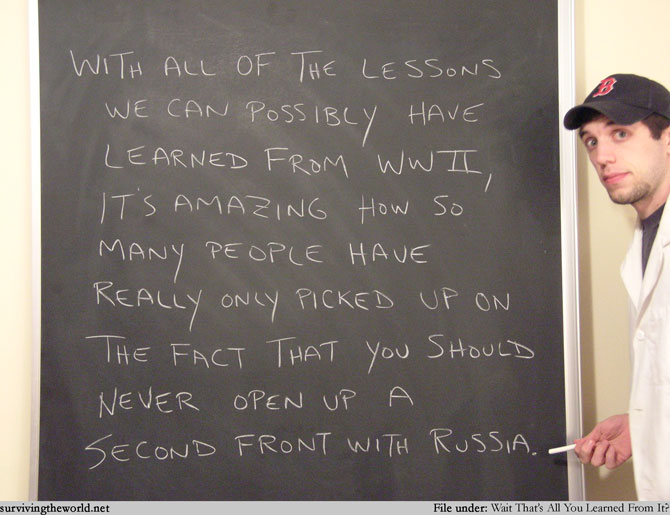 WITH ALL OF THE LESSONS
WE CAN POSSIBLY HAVE
LEARNED FROM WWII,
IT'S AMAZING HOW SO
MANY PEOPLE HAVE
REALLY ONLY PICKED UP ON
THE FACT THAT YOU SHOULD
NEVER OPEN UP A
SECOND FRONT WITH RUSSIA.
B
survivingtheworld.net
File under: Wait That's All You Learned From It?